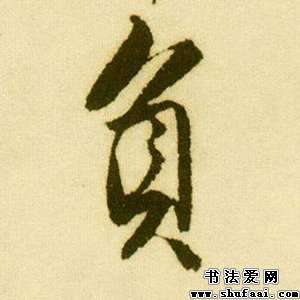 負
书法爱网
www.shufaai.com